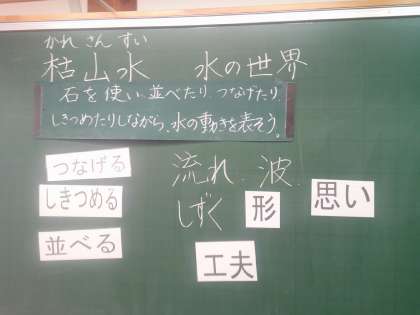 かれ さん すい
枯山水　水の世界
石を使い、並べたり、つなげたり、
しきつめたりしながら、水の動きを表そう。
つなげる
しきつめる
並べる
流れ、波、
しずく
形
思い
工夫